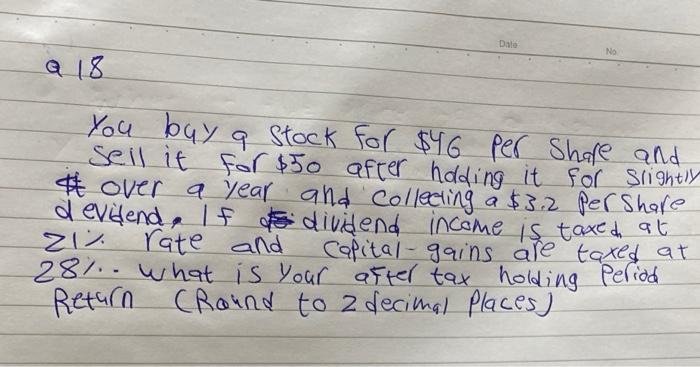 Date
No.
Q 18
You buy a stock for $46 per share and
sell it for $50 after holding it for slightly
over a year and collecting a $3.2 per share
devidend. If dividend income is taxed at
21% rate and capital-gains are taxed at
28%.. what is your after tax holding Period
Return (Round to 2 decimal places)